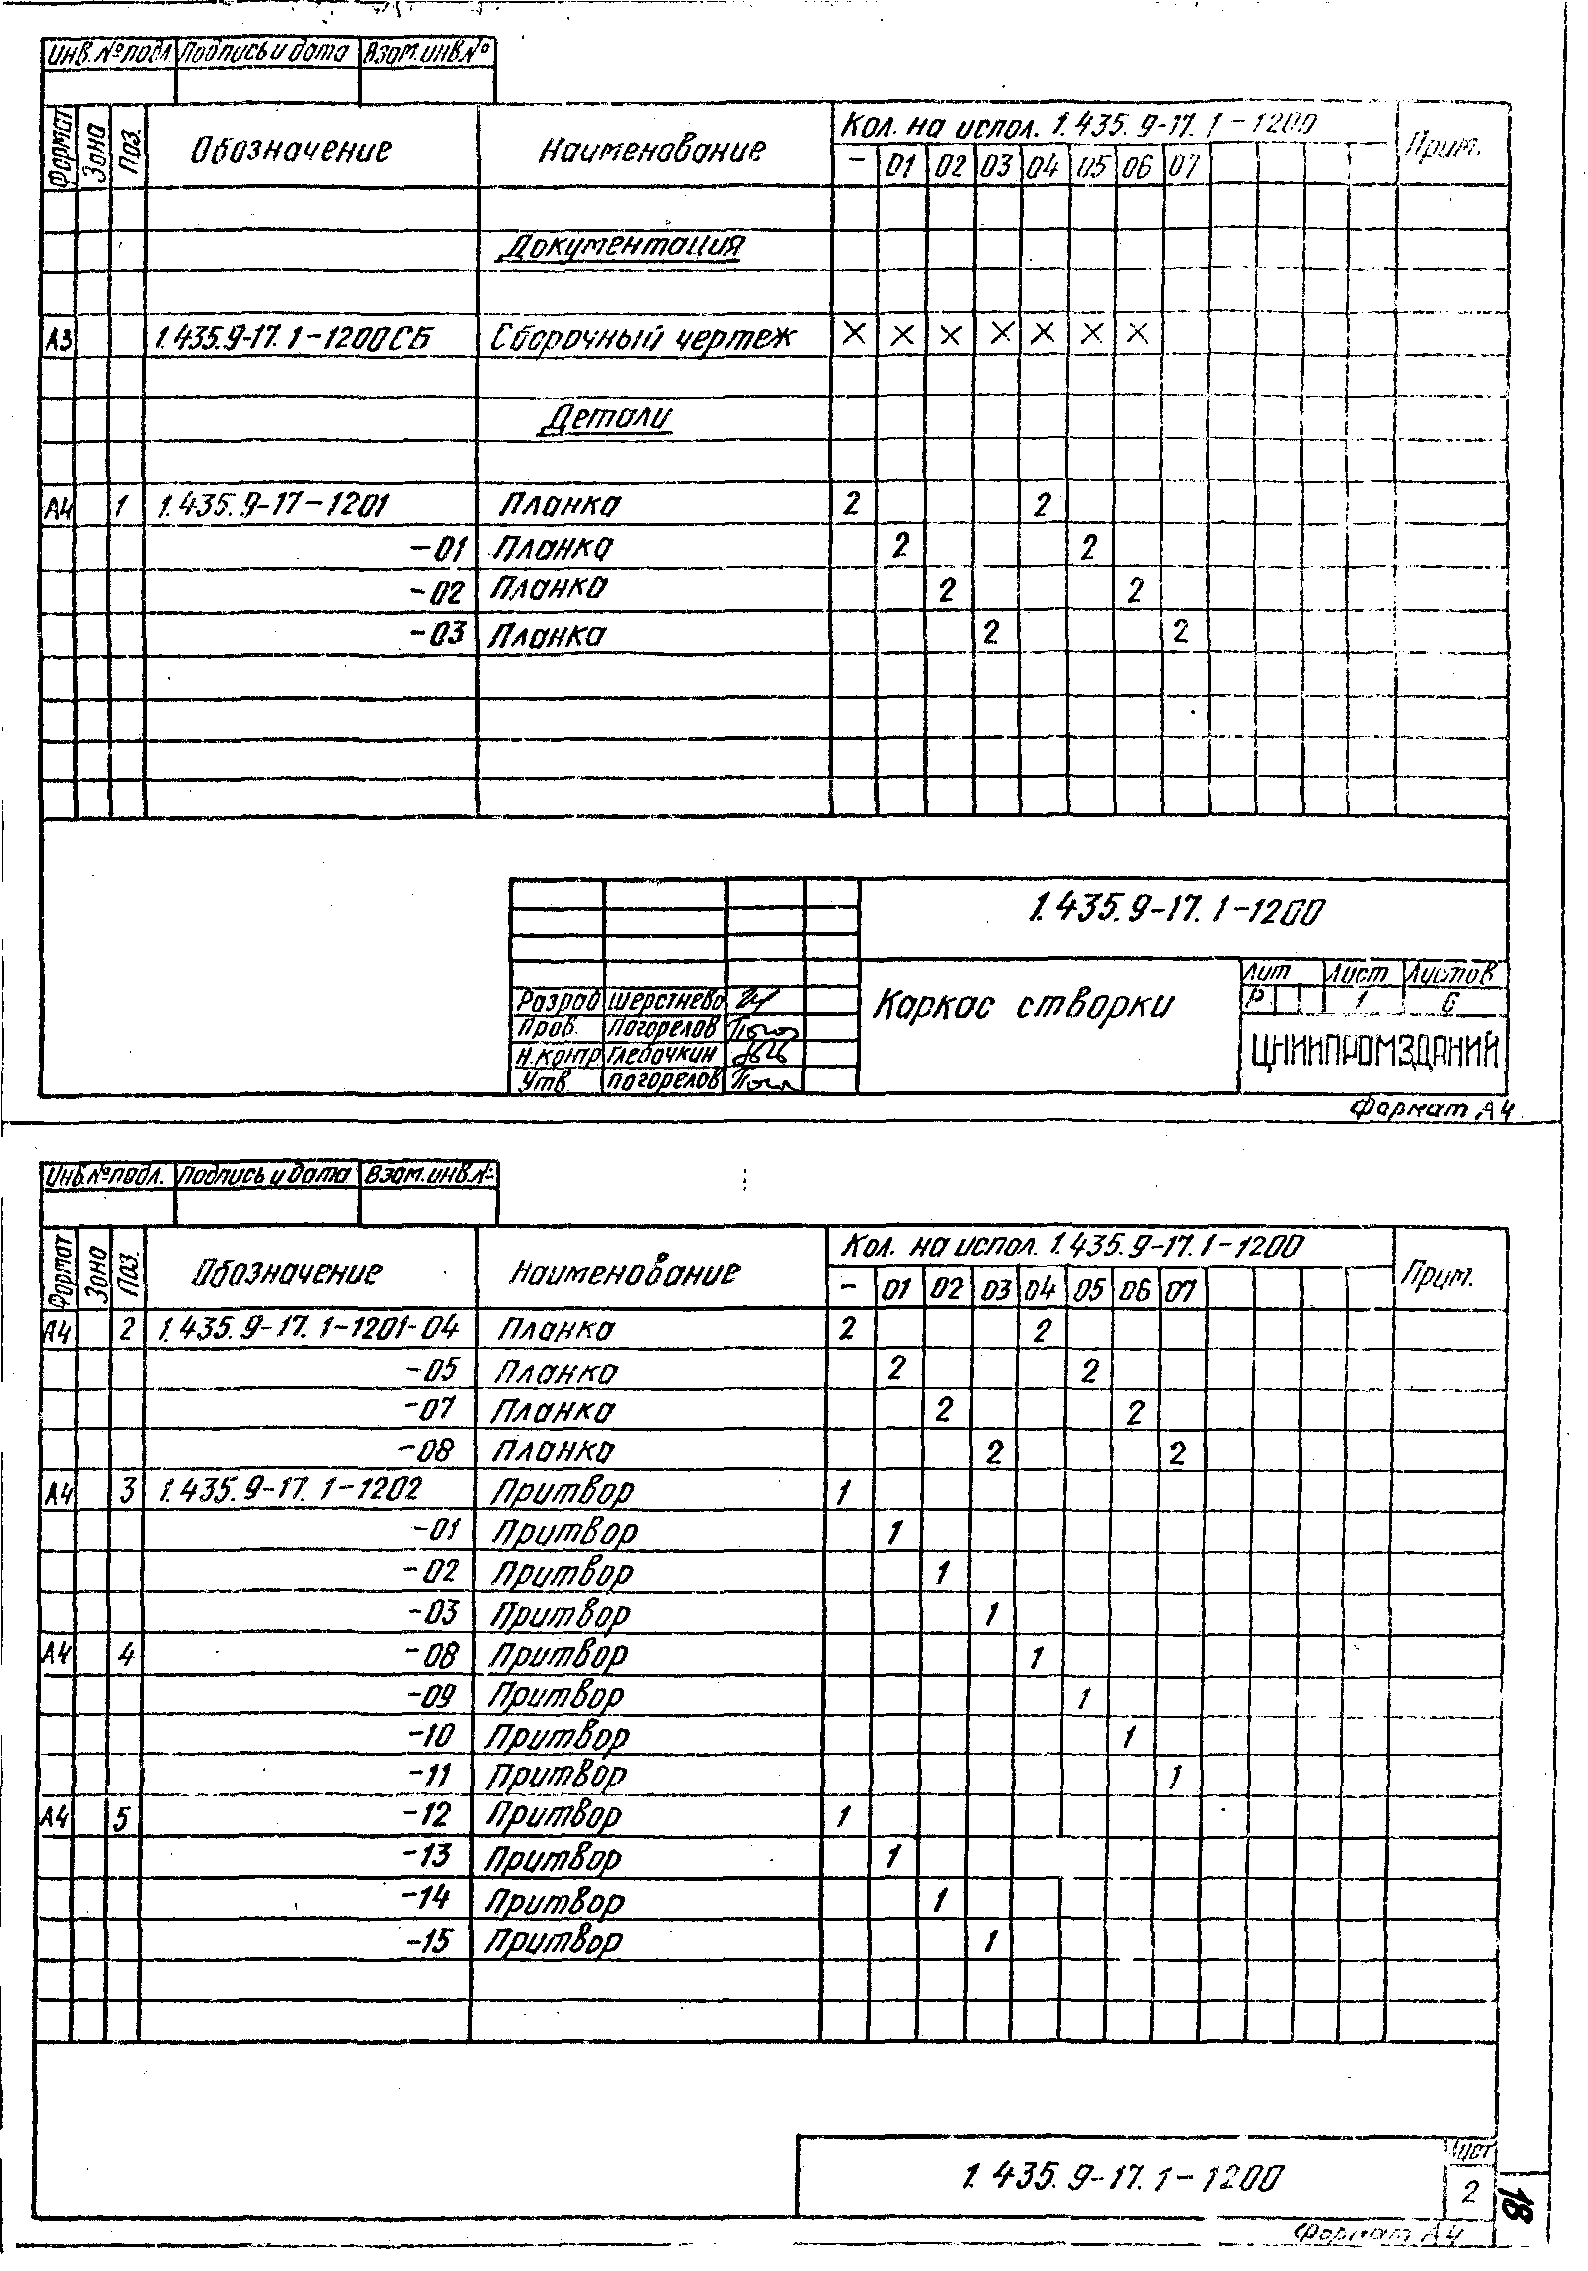 Инв.№подл Подпись и дата Взам.инв.№
Формат Зона Поз. Обозначение Наименование Кол. на испол. 1.435.9-17.1-1200 Прим.
– 01 02 03 04 05 06 07
Документация
А3 1.435.9-17.1-1200СБ Сборочный чертеж × × × × × × ×
Детали
А4 1 1.435.9-17-1201 Планка 2 2
-01 Планка 2 2
-02 Планка 2 2
-03 Планка 2 2
1.435.9-17.1-1200
Лит Лист Листов
Разраб Шерстнева
Р 1 6
Каркас створки
Пров. Погорелов
Н.контр Глебочкин
ЦНИИПРОМЗДАНИЙ
Утв Погорелов
Формат А4
Инв.№подл. Подпись и дата Взам.инв.№
Формат Зона Поз. Обозначение Наименование Кол. на испол. 1.435.9-17.1-1200 Прим.
– 01 02 03 04 05 06 07
А4 2 1.435.9-17.1-1201-04 Планка 2 2
-05 Планка 2 2
-07 Планка 2 2
-08 Планка 2 2
А4 3 1.435.9-17.1-1202 Притвор 1
-01 Притвор 1
-02 Притвор 1
-03 Притвор 1
А4 4 -08 Притвор 1
-09 Притвор 1
-10 Притвор 1
-11 Притвор 1
А4 5 -12 Притвор 1
-13 Притвор 1
-14 Притвор 1
-15 Притвор 1
1.435.9-17.1-1200
Лист
2
18
Формат А4